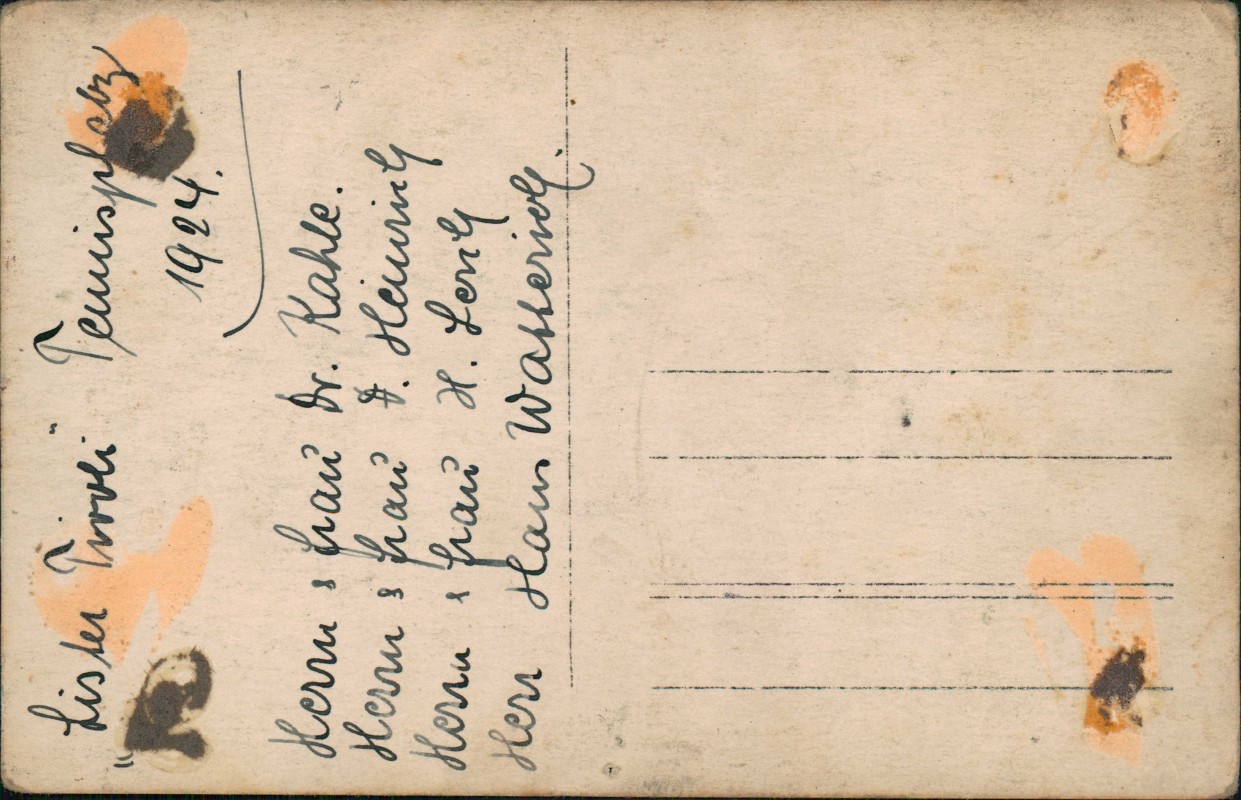 "Lister Tivoli" Tennisplatz
1924.
Herrn & Frau Dr. Kahle.
Herrn & Frau A. Heinrich
Herrn & Frau H. Lerch
Herr Hans Wasserich.